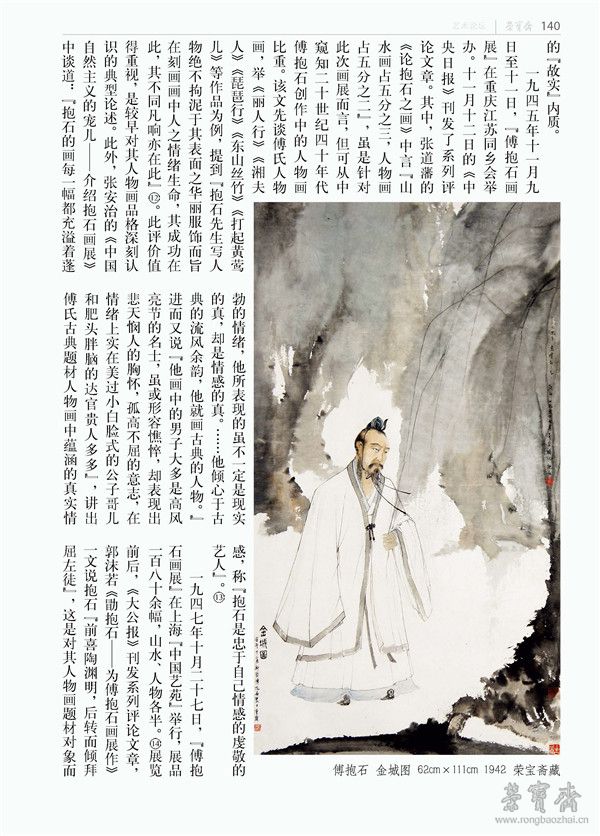 艺术论坛 | 荣宝斋 140
的『故实』内质。
一九四五年十一月九
日至十一日，『傅抱石画
展』在重庆江苏同乡会举
办。十一月十二日的《中
央日报》刊发了系列评
论文章。其中，张道藩的
《论抱石之画》中言『山
水画占五分之三，人物画
占五分之二』，虽是针对
此次画展而言，但可从中
窥知二十世纪四十年代
傅抱石创作中的人物画
比重。该文先谈傅氏人物
画，举《丽人行》《湘夫
人》《琵琶行》《东山丝竹》《打起黄莺
儿》等作品为例，提到『抱石先生写人
物绝不拘泥于其表面之华丽服饰而旨
在刻画画中人之情绪生命，其成功在
此，其不同凡响亦在此』⑫。此评价值
得重视，是较早对其人物画品格深刻认
识的典型论述。此外，张安治的《中国
自然主义的宠儿——介绍抱石画展》
中谈道：『抱石的画每一幅都充溢着蓬
勃的情绪，他所表现的虽不一定是现实
的真，却是情感的真。……他倾心于古
典的流风余韵，他就画古典的人物。』
进而又说『他画中的男子大多是高风
亮节的名士，虽或形容憔悴，却表现出
悲天悯人的胸怀，孤高不屈的意志，在
情绪上实在美过小白脸式的公子哥儿
和肥头胖脑的达官贵人多多』，讲出
傅氏古典题材人物画中蕴涵的真实情
感，称『抱石是忠于自己情感的虔敬的
艺人』。⑬
一九四七年十月二十七日，『傅抱
石画展』在上海『中国艺苑』举行，展品
一百八十余幅，山水、人物各半。⑭展览
前后，《大公报》刊发系列评论文章，
郭沫若《勖抱石——为傅抱石画展作》
一文说抱石『前喜陶渊明，后转而倾拜
屈左徒』，这是对其人物画题材对象而
金城图
傅抱石 金城图 62cm×111cm 1942 荣宝斋藏
荣宝斋
www.rongbaozhai.cn